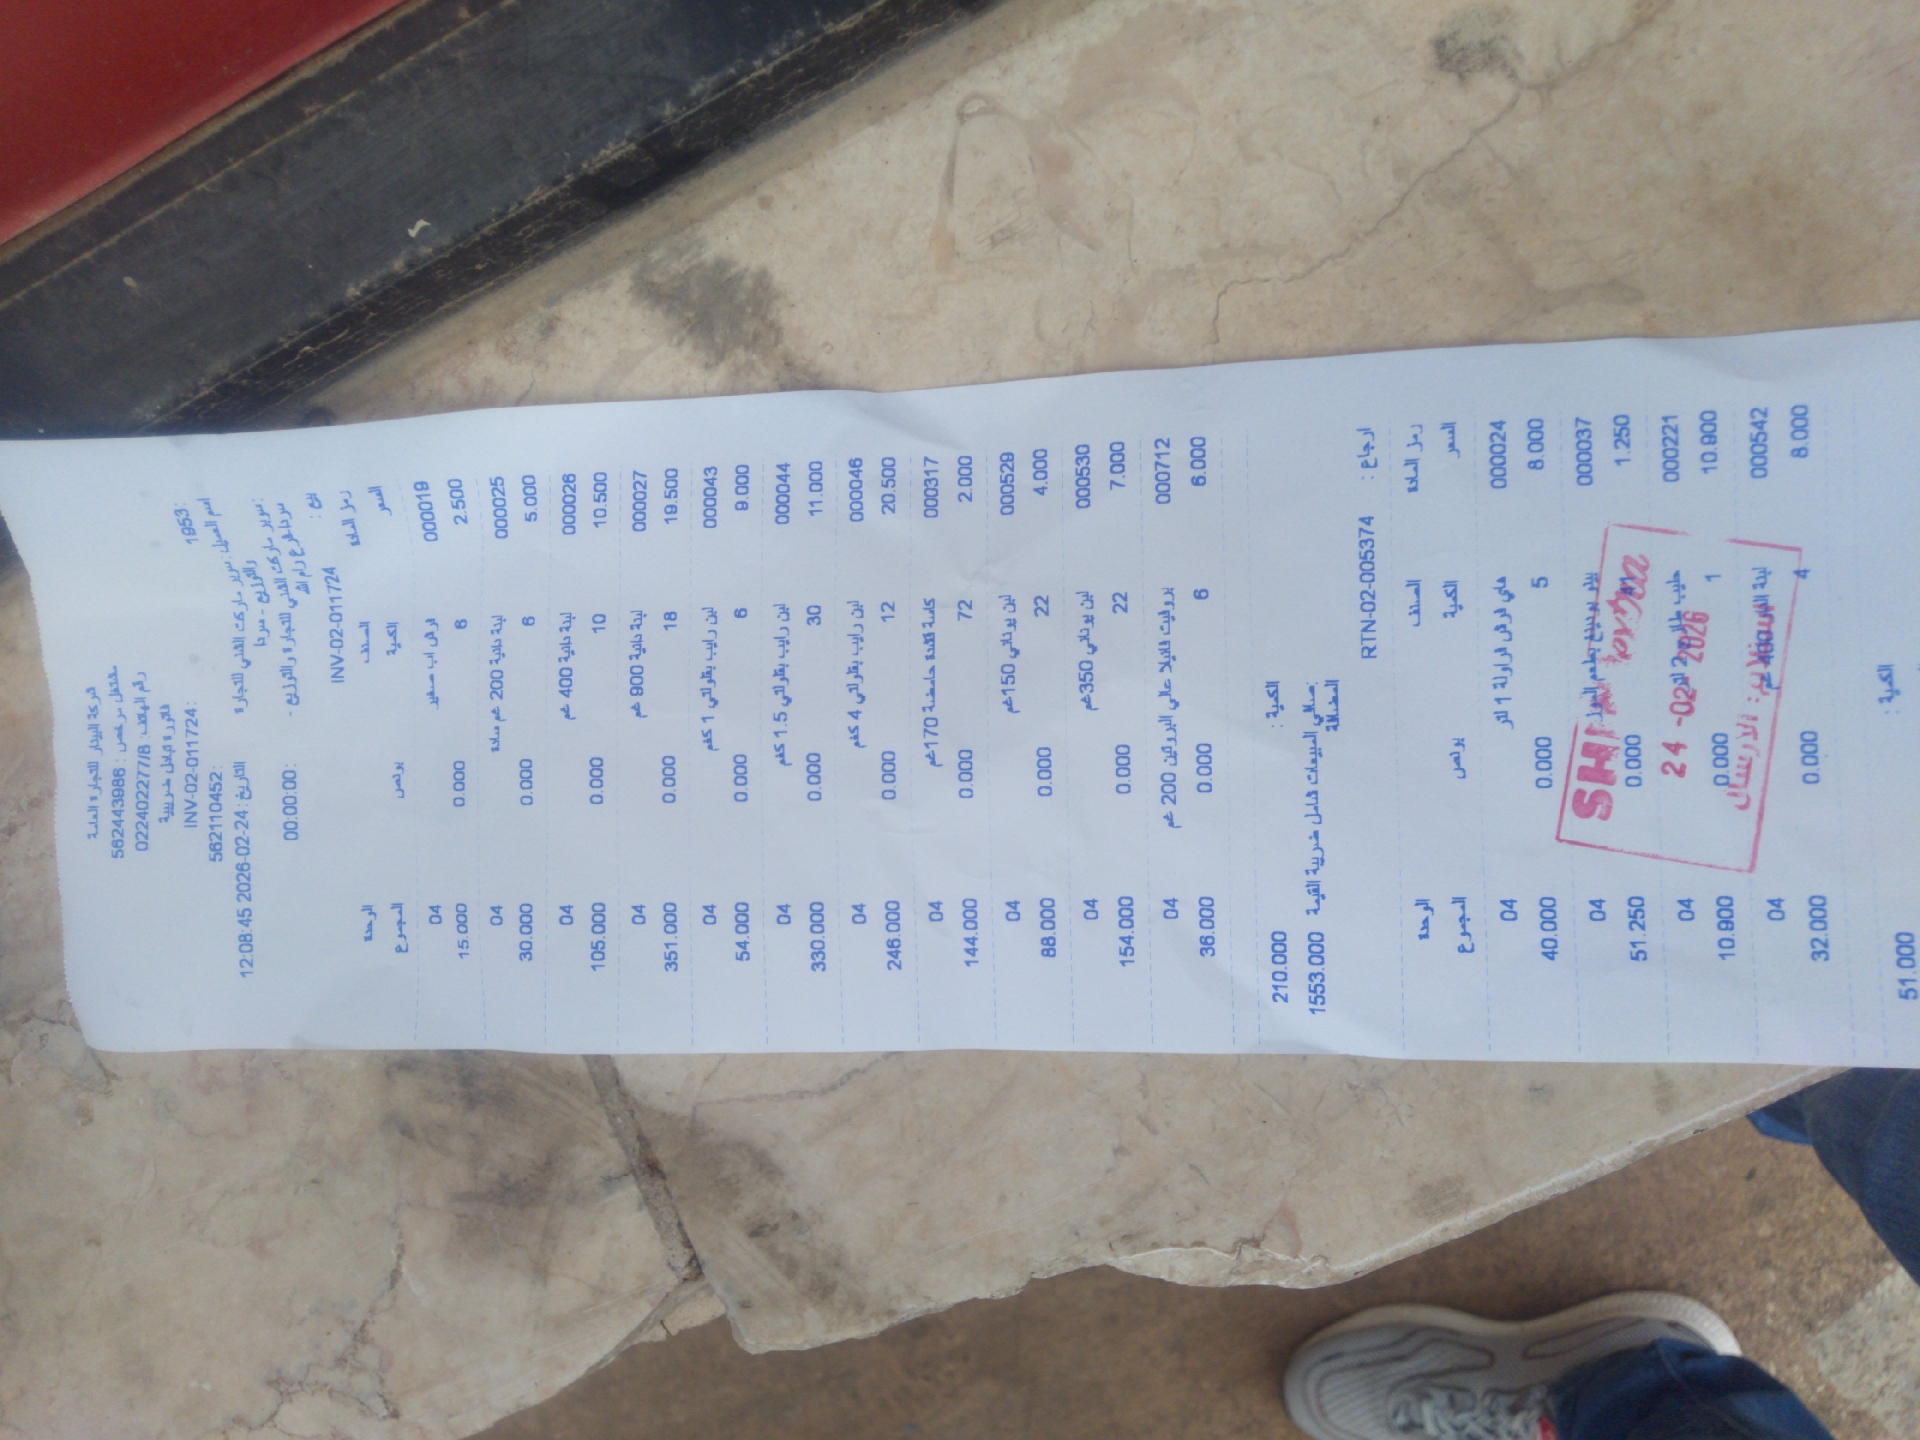 شركة البيدار للتجارة العامة
مشتغل مرخص : 562443986
رقم الهاتف: 022402277/8
فاتورة مقابل ضريبية
INV-02-011724:
1953: 562110452:
اسم العميل: سوبر ماركت الفني للتجارة والتوزيع - سردا
التاريخ: 24-02-2026 12:08:45
سوبر ماركت الفني للتجارة والتوزيع -
سردا فرع رام الله
00:00:00:
بيع : INV-02-011724
رمز المادة الصنف الوحدة
السعر الكمية بونص المجموع
000019 اب صغير 04
2.500 6 0.000 15.000
000025 لبنة دانية 200 غم سادة 04
5.000 6 0.000 30.000
000026 لبنة دانية 400 غم 04
10.500 10 0.000 105.000
000027 لبنة دانية 900 غم 04
19.500 18 0.000 351.000
000043 لبن رايب بقلولتي 1 كغم 04
9.000 6 0.000 54.000
000044 لبن رايب بقلولتي 1.5 كغم 04
11.000 30 0.000 330.000
000046 لبن رايب بقلولتي 4 كغم 04
20.500 12 0.000 246.000
000317 حامضة 170غم 04
2.000 72 0.000 144.000
000529 لبن يوناني 150غم 04
4.000 22 0.000 88.000
000530 لبن يوناني 350غم 04
7.000 22 0.000 154.000
000712 فانيلا عالي البروتين 200 غم 04
6.000 6 0.000 36.000
الكمية : 210.000
صافي المبيعات شامل ضريبة القيمة المضافة: 1553.000
ارجاع : RTN-02-005374
رمز المادة الصنف الوحدة
السعر الكمية بونص المجموع
000024 فراولة 1 لتر 04
8.000 5 0.000 40.000
000037 بطعم 04
1.250 0.000 51.250
000221 حليب 04
10.900 1 0.000 10.900
000542 لبنة 400غم 04
8.000 4 0.000 32.000
24-02-2026
الكمية : 51.000